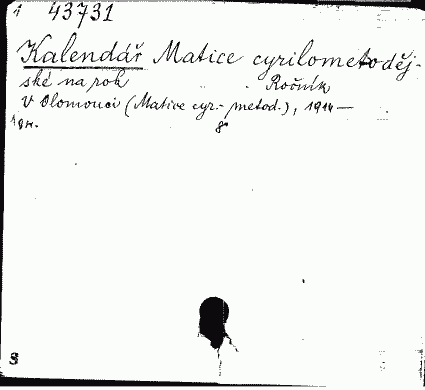 1 43731
Kalendář Matice cyrilometoděj-
ské na rok Ročník
V Olomouci (Matice cyr.-metod.), 1914—
8°
S